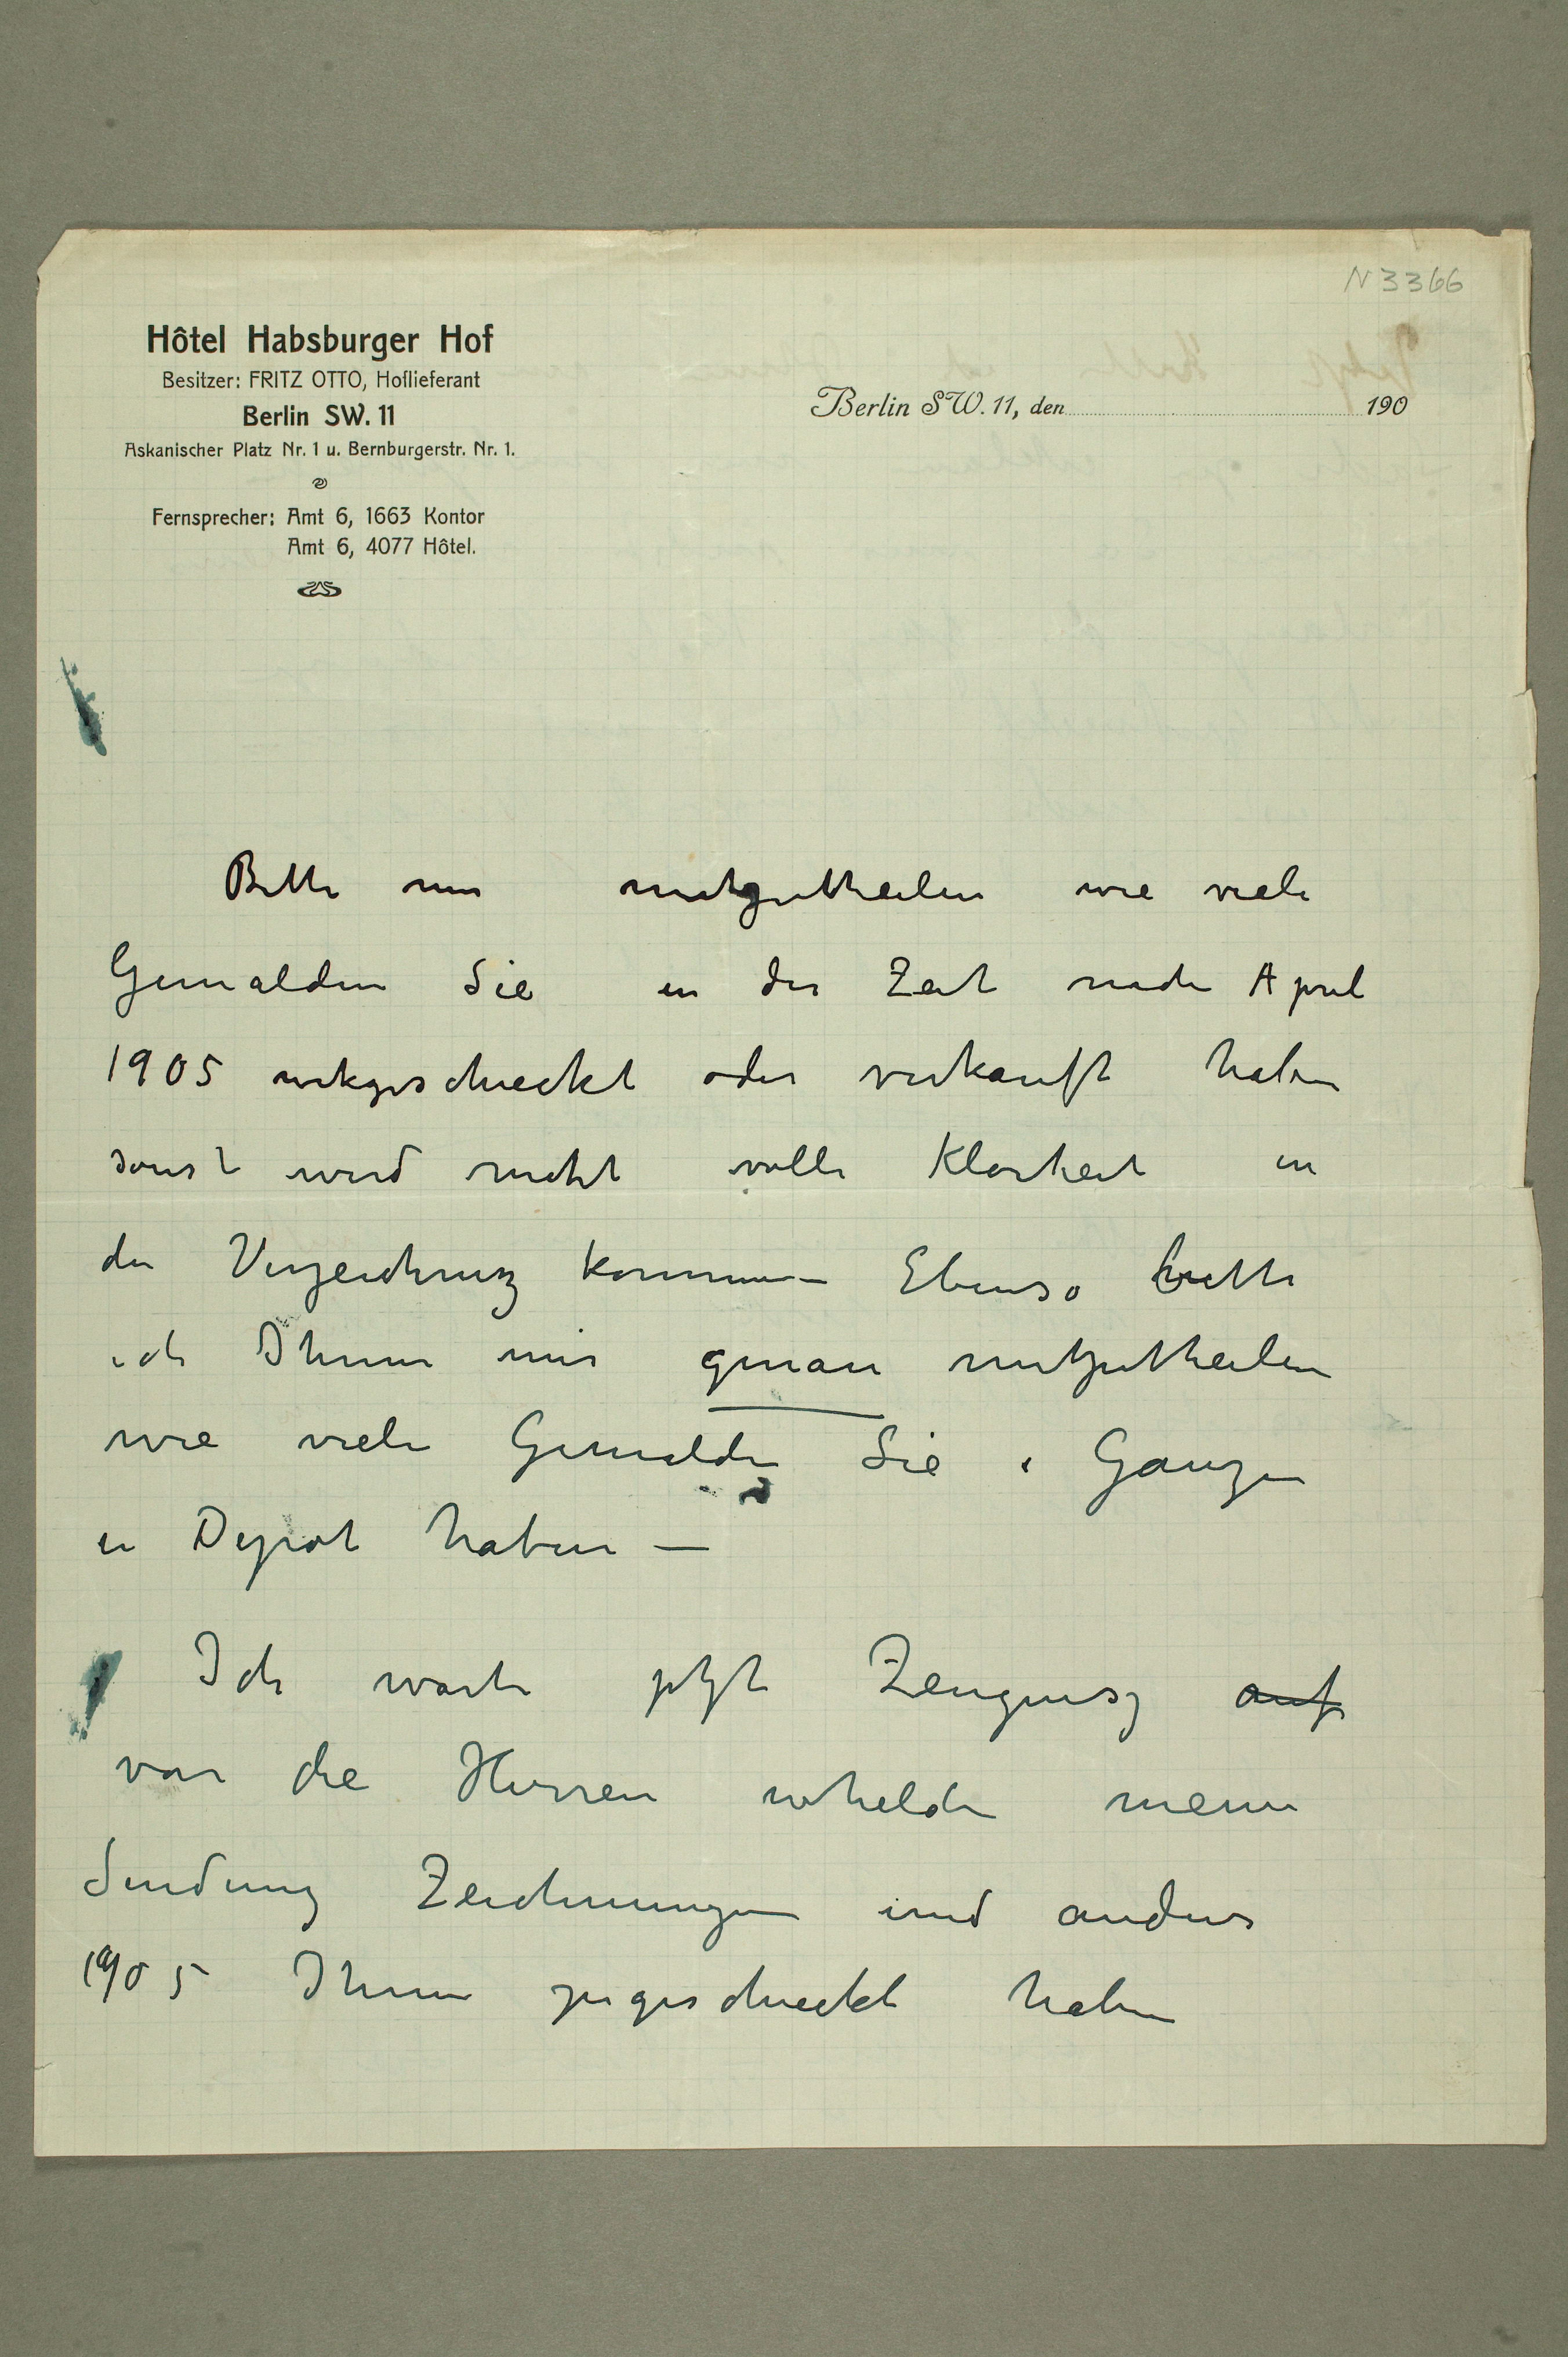 N 3366
Hôtel Habsburger Hof
Besitzer: FRITZ OTTO, Hoflieferant
Berlin SW. 11
Askanischer Platz Nr. 1 u. Bernburgerstr. Nr. 1.
Fernsprecher: Amt 6, 1663 Kontor
Amt 6, 4077 Hôtel.
Berlin SW. 11, den 190
Bitte mir mitzutheilen wie viele
Gemälden Sie in der Zeit nach April
1905 wekgeschieckt oder verkauft haben
sonst wird nicht volle Klarheit in
der Verzeichnisz kommen – Ebenso bitte
ich Ihnen mir genau mitzutheilen
wie viele Gemälden Sie i Ganzen
in Depot haben –
Ich warte jetzt Zeugnisz auf
von die Herren whelche meine
Sendung Zeichnungen und anders
1905 Ihnen zugeschieckt haben